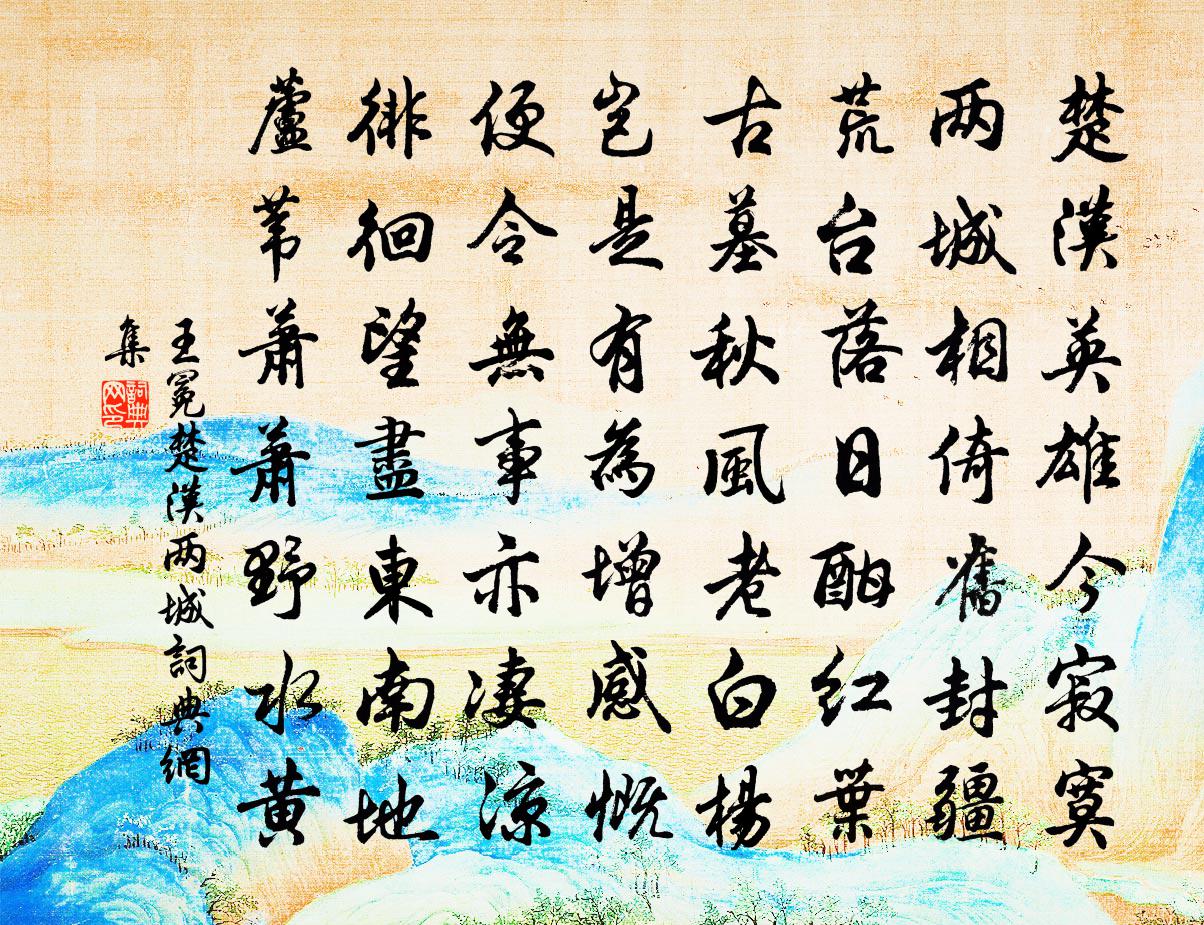 楚漢英雄今寂寞
两城相倚舊封疆
荒台落日酣红葉
古墓秋風老白楊
岂是有為增感慨
便令無事亦凄涼
徘徊望盡東南地
蘆苇蕭蕭野水黄
王冕楚漢两城詞典網
集
詞典
网印